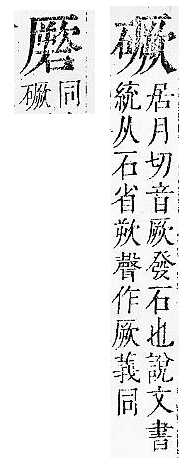 居月切音厥發石也說文書
統从石省欮聲作厥義同
同